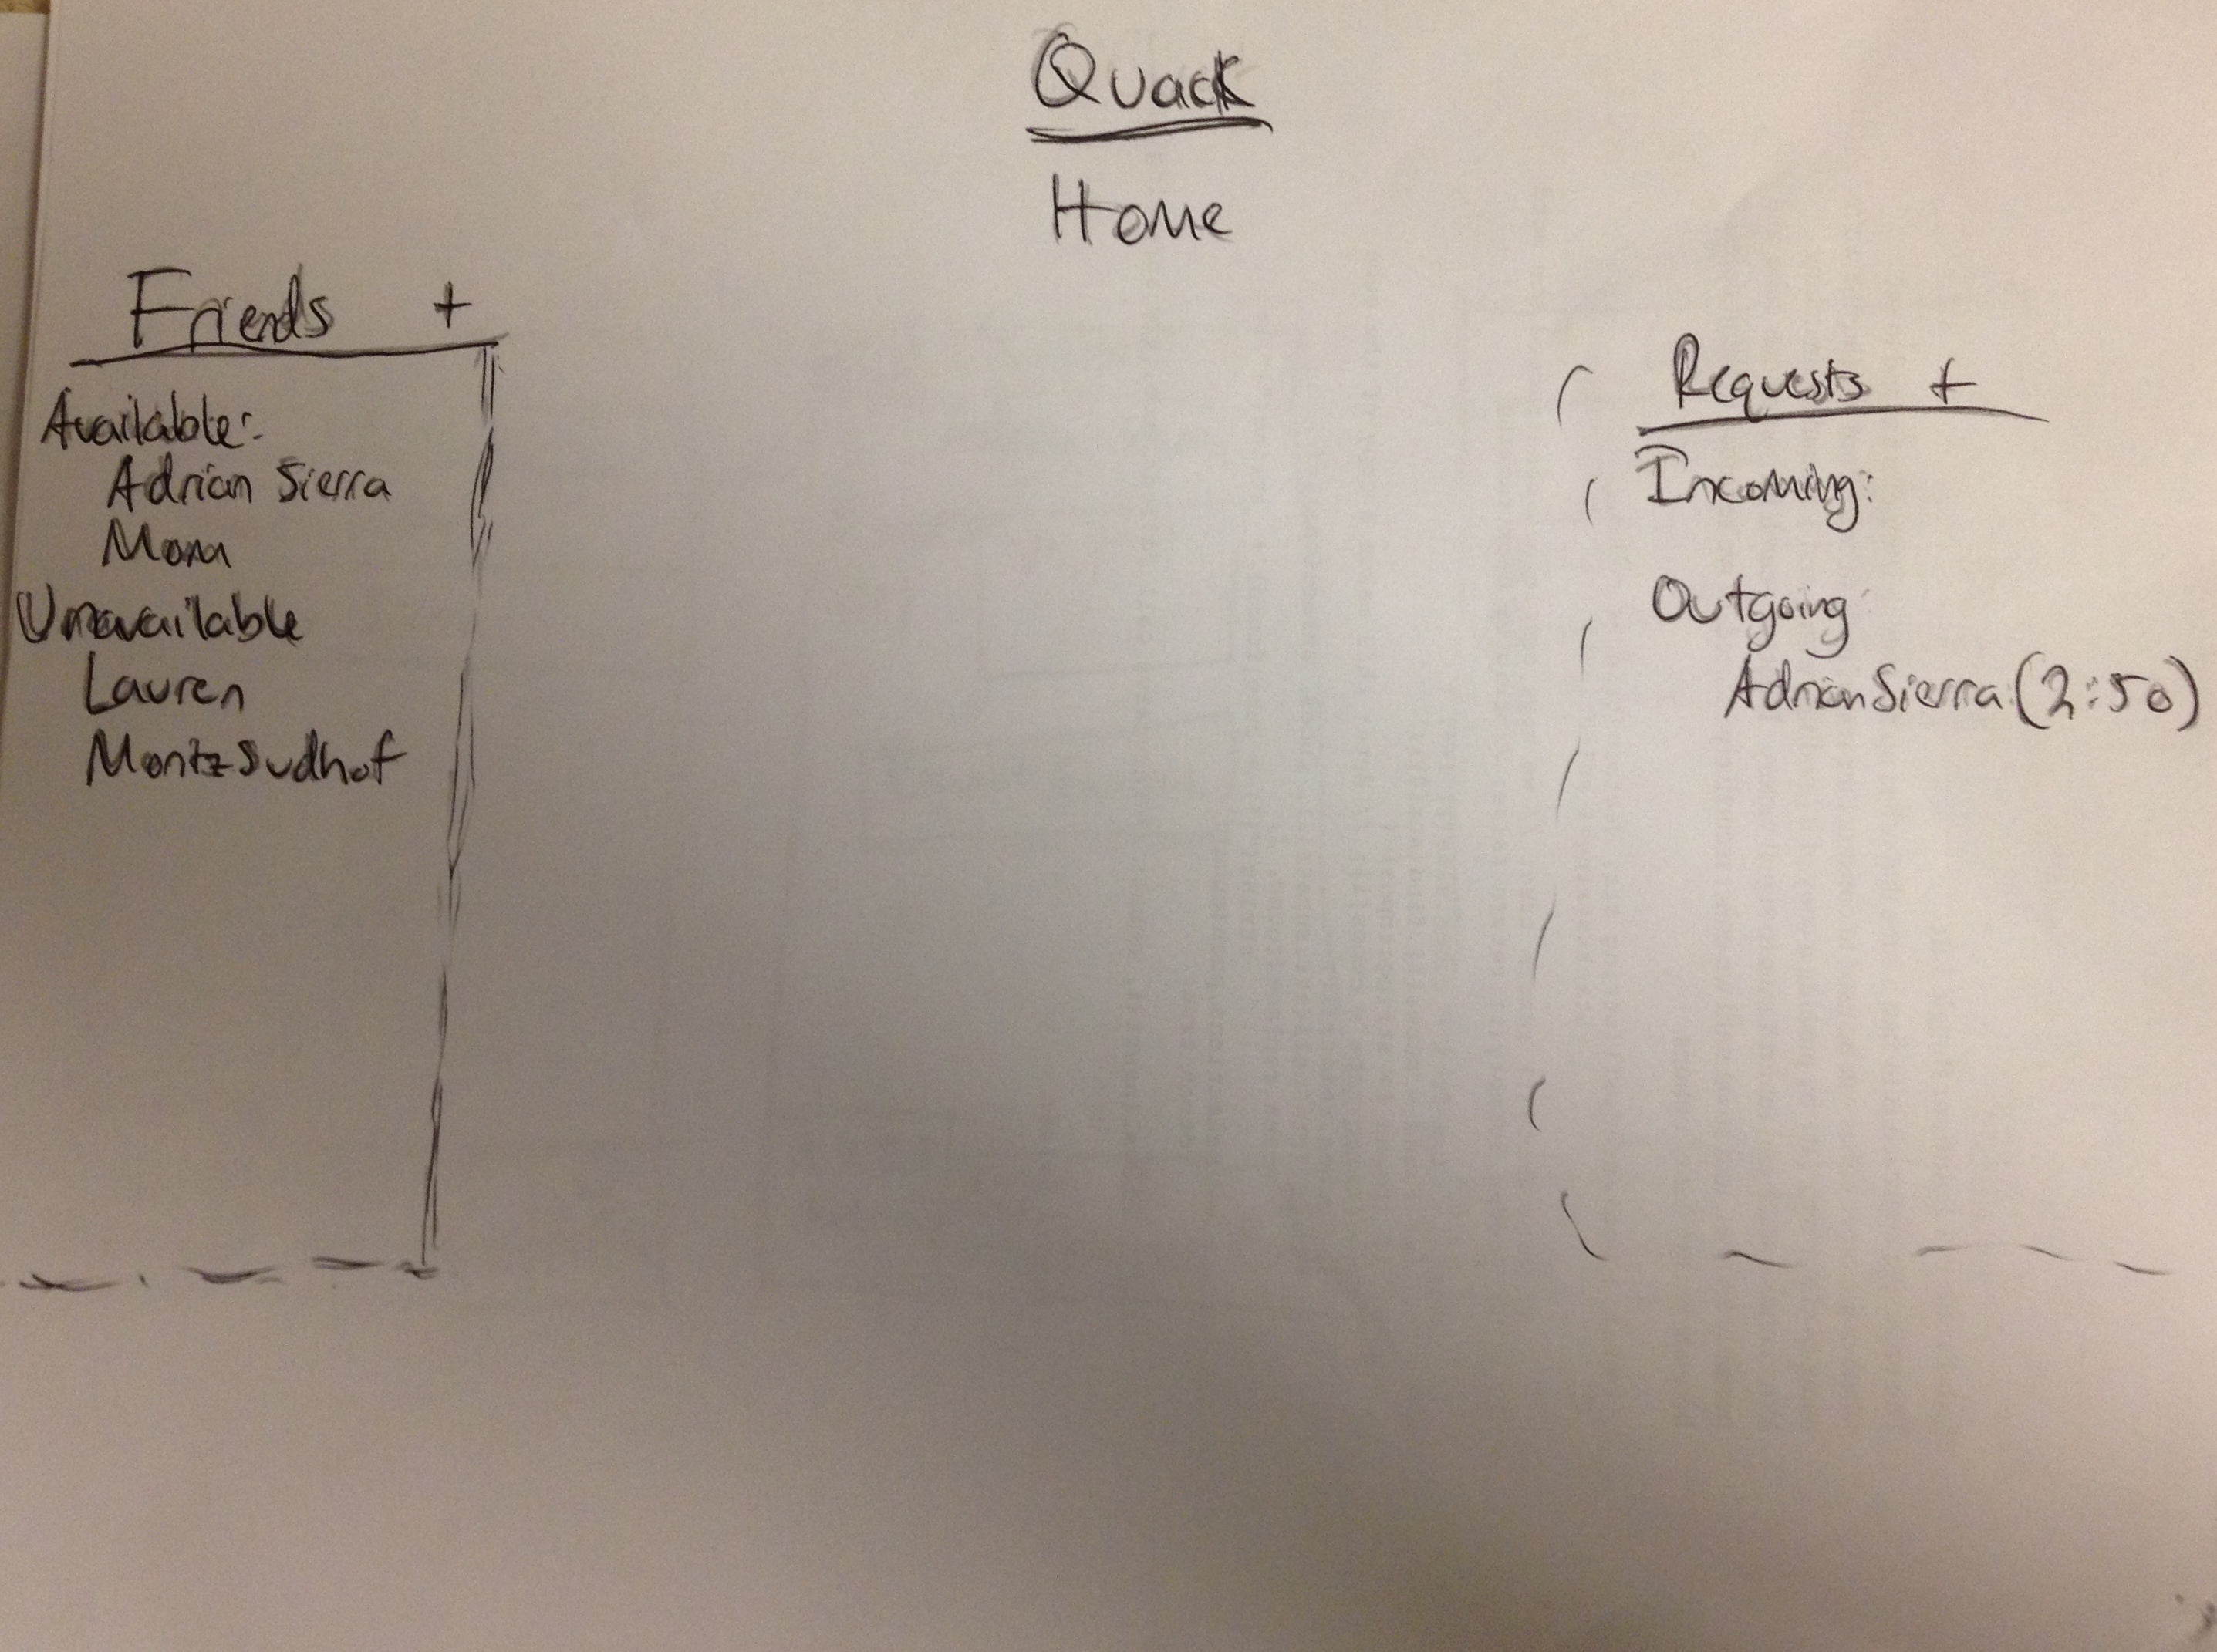 Quack
Home
Friends +
Available:
Adrian Sierra
Mom
Unavailable
Lauren
Moritz Sudhof
Requests +
Incoming:
Outgoing
Adrian Sierra (2:50)